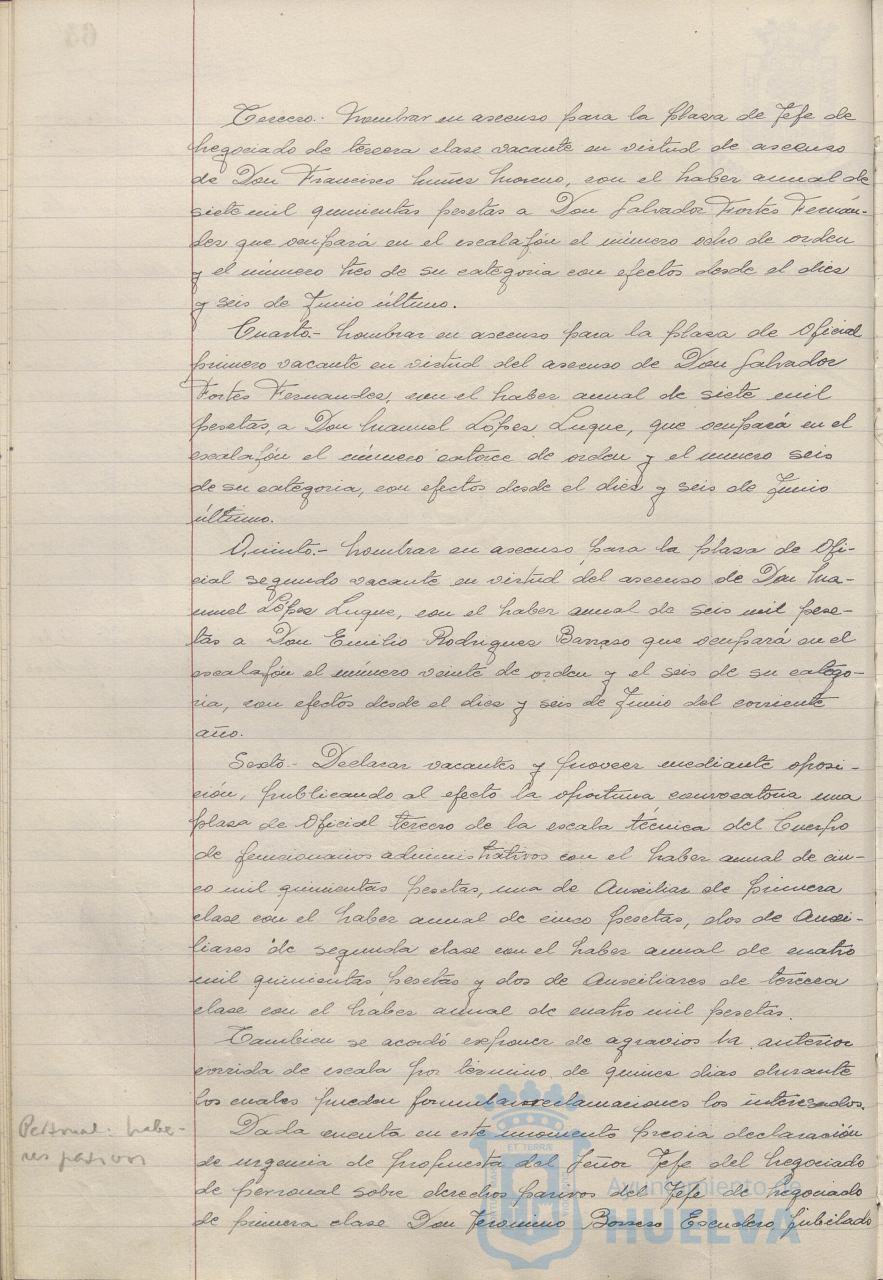 Tercero.- Nombrar en ascenso para la plaza de Jefe de
Negociado de tercera clase vacante en virtud de ascenso
de Don Francisco Núñez Moreno, con el haber annal de
siete mil quinientas pesetas a Don Salvador Fortes Fernán-
dez que ocupará en el escalafón el número ocho de orden
y el número tres de su categoria con efectos desde el diez
y seis de Junio último.
Cuarto.- Nombrar en ascenso para la plaza de Oficial
primero vacante en virtud del ascenso de Don Salvador
Fortes Fernandez, con el haber anual de siete mil
pesetas, a Don Manuel López Luque, que ocupará en el
escalafón el número catorce de orden y el numero seis
de su categoria, con efectos desde el diez y seis de Junio
último.
Quinto.- Nombrar en ascenso para la plaza de Ofi-
cial segundo vacante en virtud del ascenso de Don Ma-
nuel López Luque, con el haber anual de seis mil pese-
tas a Don Emilio Rodriguez Barraso que ocupará en el
escalafón el número veinte de orden y el seis de su catego-
ria, con efectos desde el diez y seis de Junio del corriente
año.
Sexto.- Declarar vacantes y proveer mediante oposi-
ción, publicando al efecto la oportuna convocatoria una
plaza de Oficial tercero de la escala técnica del Cuerpo
de funcionarios administrativos con el haber anual de cin-
co mil quinientas pesetas, una de Auxiliar de primera
clase con el haber annual de cinco pesetas, dos de Auxi-
liares de segunda clase con el haber anual de cuatro
mil quinientas pesetas y dos de Auxiliares de tercera
clase con el haber annual de cuatro mil pesetas.
Tambien se acordó exponer de agravios la anterior
corrida de escala por término de quince dias durante
los cuales puedan formular reclamaciones los interesados.
Personal: habe-
res pasivos
Dada cuenta en este momento previa declaración
de urgencia de propuesta del Señor Jefe del Negociado
de personal sobre derechos pasivos del Jefe de Negociado
de primera clase Don Jeronimo Borrero Escudero jubilado
Ayuntamiento de
HUELVA